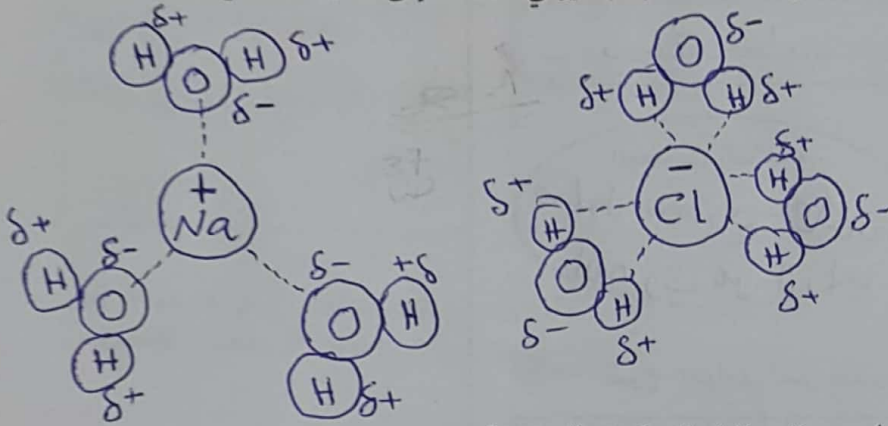 δ+
H
O
H
δ+
δ-
+
Na
δ+
H
δ-
O
H
δ+
δ-
+δ
O
H
H
δ+
δ-
O
δ+
H
H
δ+
-
Cl
δ+
H
O
δ-
H
δ+
δ+
H
O
H
δ-
δ+